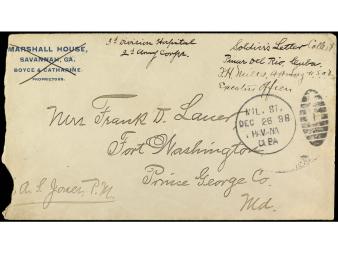 MARSHALL HOUSE,
SAVANNAH, GA.
BOYCE & CATHARINE
PROPRIETORS.
3d Division Hospital
2d Army Corps.
Soldier's Letter
Pinar del Rio, Cuba.
Executive Officer
MIL. ST.
DEC 26 98
HAVANA
CUBA
Mrs Frank D. Lauer
Fort Washington
Prince George Co.
Md.
A. S. Jones, P.M.